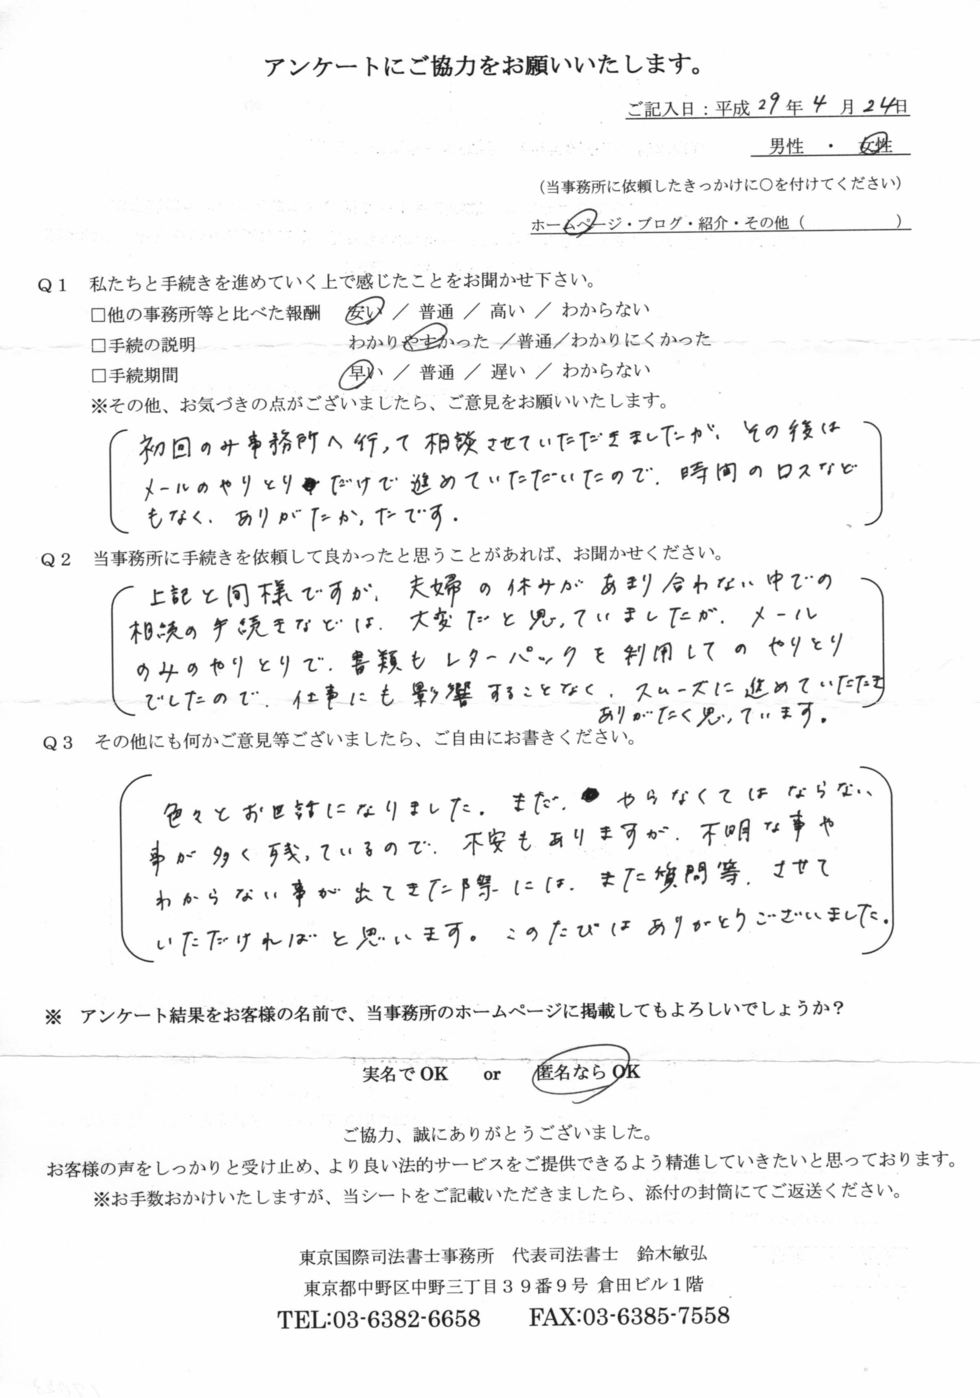 アンケートにご協力をお願いいたします。
ご記入日：平成29年4月24日
男性 ・ 女性
（当事務所に依頼したきっかけに○を付けてください）
ホームページ・ブログ・紹介・その他（　　　　　）
Q１　私たちと手続きを進めていく上で感じたことをお聞かせ下さい。
□他の事務所等と比べた報酬　安い ／ 普通 ／ 高い ／ わからない
□手続の説明　わかりやすかった ／普通／わかりにくかった
□手続期間　早い ／ 普通 ／ 遅い ／ わからない
※その他、お気づきの点がございましたら、ご意見をお願いいたします。
初回のみ事務所へ行って相談させていただきましたが、その後は
メールのやりとりだけで進めていただいたので、時間のロスなど
もなく、ありがたかったです。
Q２　当事務所に手続きを依頼して良かったと思うことがあれば、お聞かせください。
上記と同様ですが、夫婦の休みがあまり合わない中での
相続の手続きなどは、大変だと思っていましたが、メール
のみのやりとりで、書類もレターパックを利用してのやりとり
でしたので、仕事にも影響することなく、スムーズに進めていただき
ありがたく思っています。
Q３　その他にも何かご意見等ございましたら、ご自由にお書きください。
色々とお世話になりました。まだ、やらなくてはならない
事が多く残っているので、不安もありますが、不明な事や
わからない事が出てきた際には、また質問等、させて
いただければと思います。このたびはありがとうございました。
※　アンケート結果をお客様の名前で、当事務所のホームページに掲載してもよろしいでしょうか？
実名でOK　or　匿名ならOK
ご協力、誠にありがとうございました。
お客様の声をしっかりと受け止め、より良い法的サービスをご提供できるよう精進していきたいと思っております。
※お手数おかけいたしますが、当シートをご記載いただきましたら、添付の封筒にてご返送ください。
東京国際司法書士事務所　代表司法書士　鈴木敏弘
東京都中野区中野三丁目３９番９号 倉田ビル１階
TEL:03-6382-6658　FAX:03-6385-7558